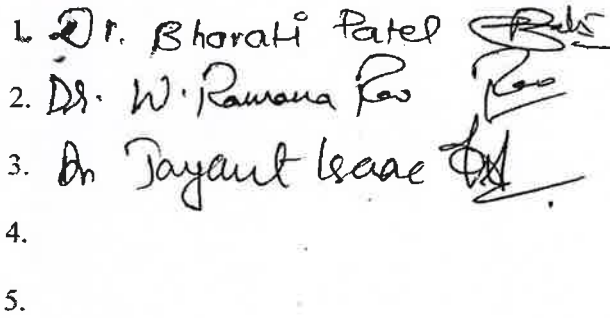 1. Dr. Bharati Patel
2. Dr. W. Ramana Rao Rao
3. Dr Jayant Isaac
4.
5.